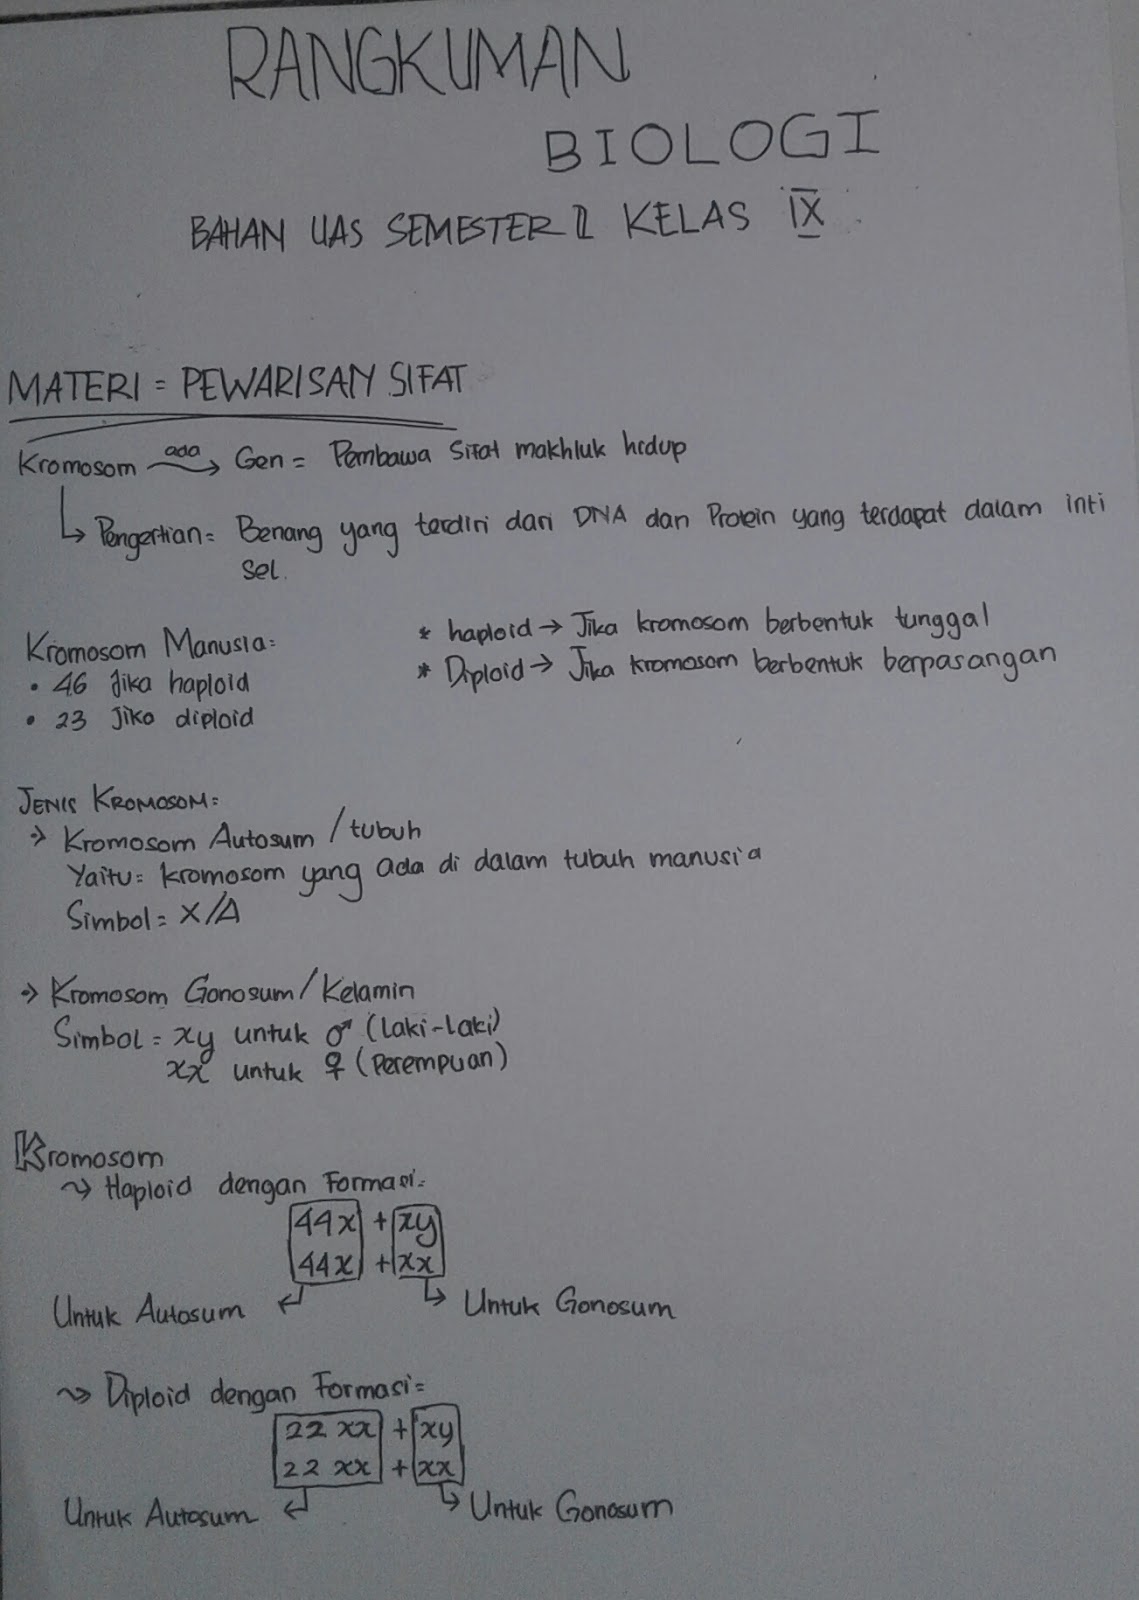 RANGKUMAN
BIOLOGI
BAHAN UAS SEMESTER II KELAS IX
MATERI = PEWARISAN SIFAT
Kromosom ada → Gen = Pembawa sifat makhluk hidup
↳ Pengertian = Benang yang terdiri dari DNA dan Protein yang terdapat dalam inti
sel.
Kromosom Manusia =
• 46 Jika haploid
• 23 Jika diploid
* haploid → Jika kromosom berbentuk tunggal
* Diploid → Jika kromosom berbentuk berpasangan
JENIS KROMOSOM =
→ Kromosom Autosum / tubuh
Yaitu = kromosom yang ada di dalam tubuh manusia
Simbol = X/A
→ Kromosom Gonosum/Kelamin
Simbol = xy untuk ♂ (Laki-Laki)
xx untuk ♀ (Perempuan)
Kromosom
~> Haploid dengan Formasi =
44x + xy
44x + xx
Untuk Autosum ↲ ↳ Untuk Gonosum
~> Diploid dengan Formasi =
22 xx + xy
22 xx + xx
Untuk Autosum ↲ ↳ Untuk Gonosum